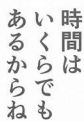 時間は
いくらでも
あるからね